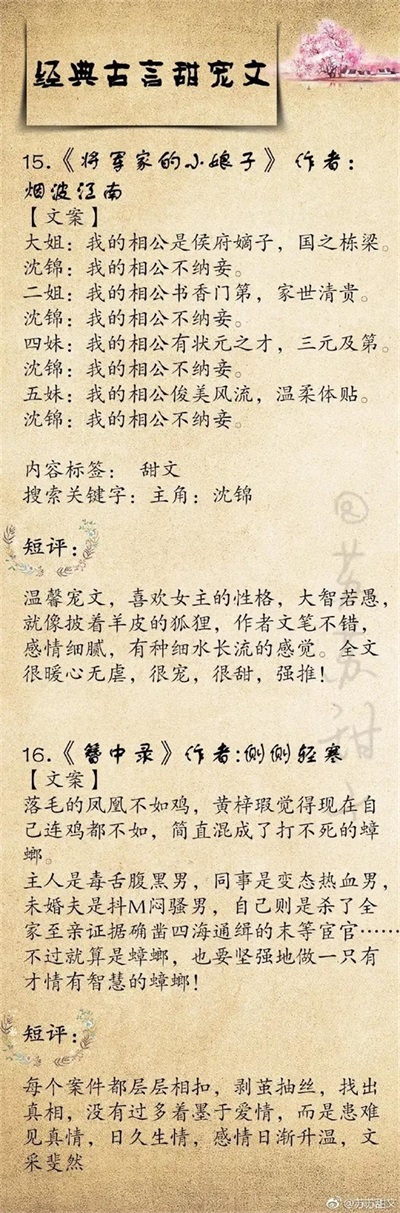 经典古言甜宠文
15.《将军家的小娘子》作者：
烟波江南
【文案】
大姐：我的相公是侯府嫡子，国之栋梁。
沈锦：我的相公不纳妾。
二姐：我的相公书香门第，家世清贵。
沈锦：我的相公不纳妾。
四妹：我的相公有状元之才，三元及第。
沈锦：我的相公不纳妾。
五妹：我的相公俊美风流，温柔体贴。
沈锦：我的相公不纳妾。
内容标签： 甜文
搜索关键字：主角：沈锦
短评：
温馨宠文，喜欢女主的性格，大智若愚，
就像披着羊皮的狐狸，作者文笔不错，
感情细腻，有种细水长流的感觉。全文
很暖心无虐，很宠，很甜，强推！
16.《簪中录》作者:侧侧轻寒
【文案】
落毛的凤凰不如鸡，黄梓瑕觉得现在自
己连鸡都不如，简直混成了打不死的蟑
螂。
主人是毒舌腹黑男，同事是变态热血男，
未婚夫是抖M闷骚男，自己则是杀了全
家至亲证据确凿四海通缉的末等宦官……
不过就算是蟑螂，也要坚强地做一只有
才情有智慧的蟑螂！
短评：
每个案件都层层相扣，剥茧抽丝，找出
真相，没有过多着墨于爱情，而是患难
见真情，日久生情，感情日渐升温，文
采斐然